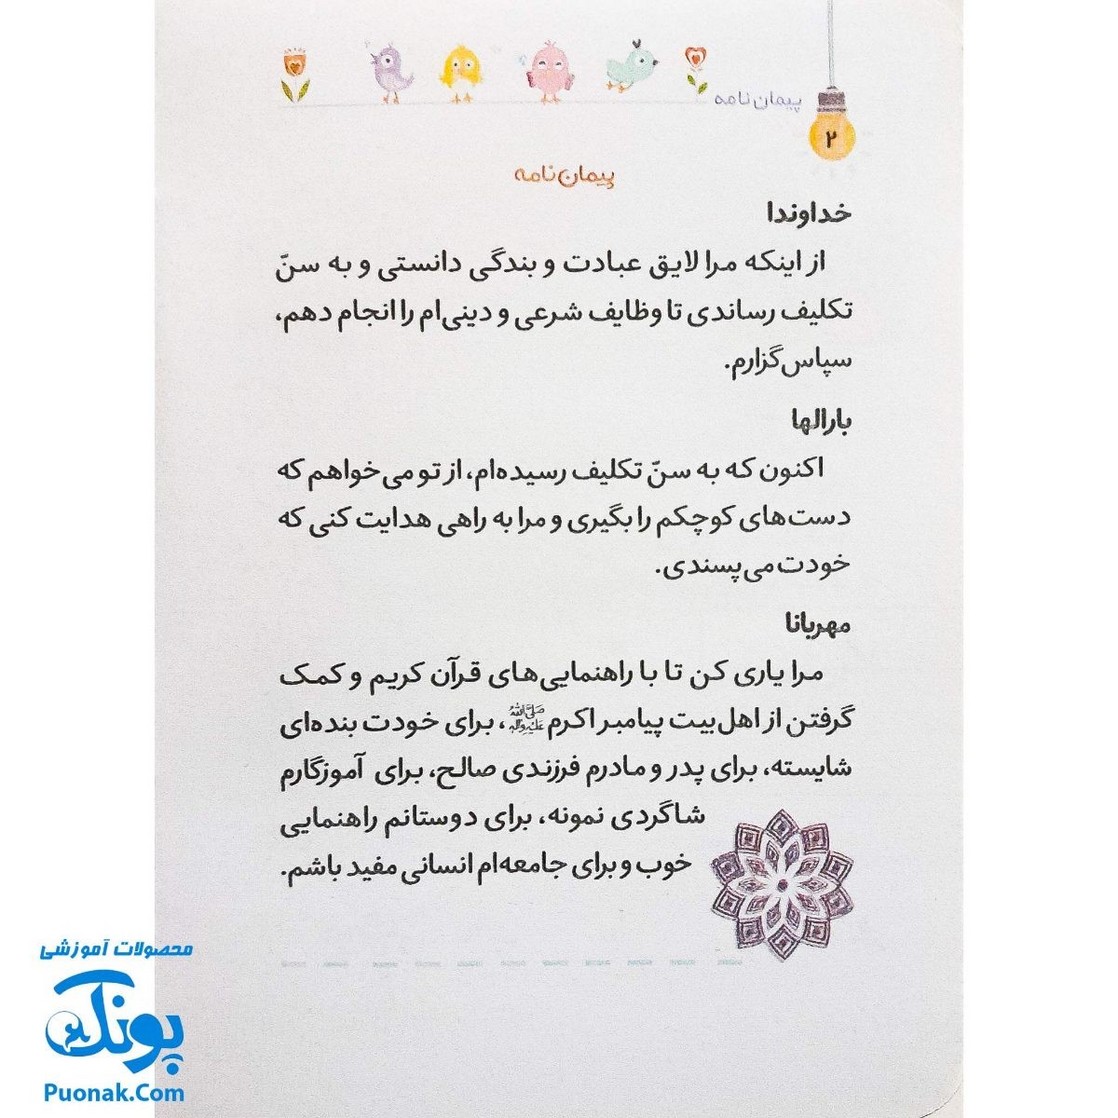 پیمان‌نامه
۲
پیمان‌نامه
خداوندا
از اینکه مرا لایق عبادت و بندگی دانستی و به سنّ
تکلیف رساندی تا وظایف شرعی و دینی‌ام را انجام دهم،
سپاس‌گزارم.
بارالها
اکنون که به سنّ تکلیف رسیده‌ام، از تو می‌خواهم که
دست‌های کوچکم را بگیری و مرا به راهی هدایت کنی که
خودت می‌پسندی.
مهربانا
مرا یاری کن تا با راهنمایی‌های قرآن کریم و کمک
گرفتن از اهل‌بیت پیامبر اکرم صَلَّی اللهُ عَلَیْهِ وَآلِهِ، برای خودت بنده‌ای
شایسته، برای پدر و مادرم فرزندی صالح، برای آموزگارم
شاگردی نمونه، برای دوستانم راهنمایی
خوب و برای جامعه‌ام انسانی مفید باشم.
محصولات آموزشی
پونک
Puonak.Com